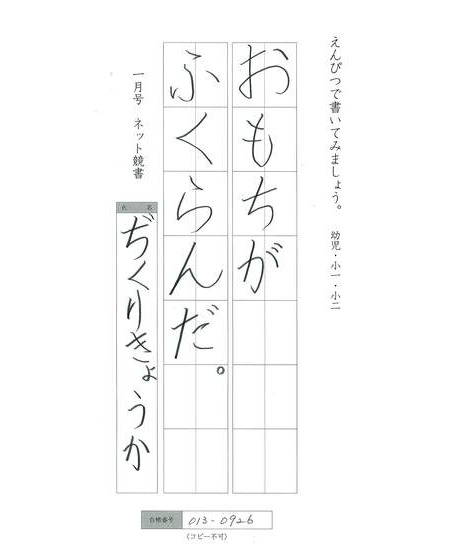 えんぴつで書いてみましょう。 幼児・小一・小二
おもちが
ふくらんだ。
一月号 ネット競書
氏名
ぢくりきょうか
台帳番号 013-0926
(コピー不可)